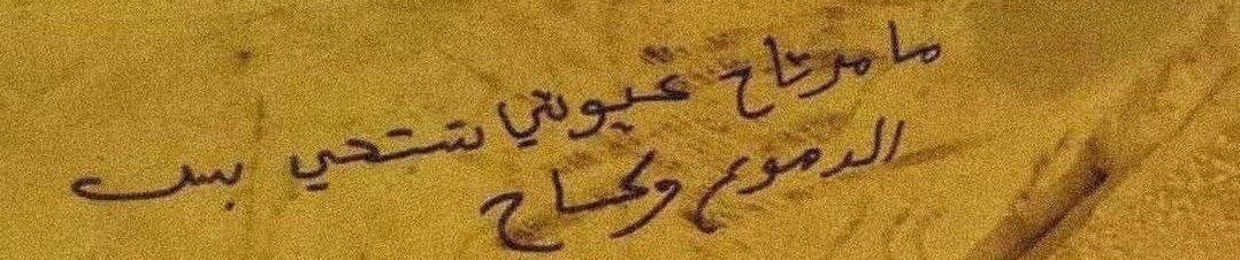 ما مرتاح عيوني تستحي بس
الدموع وكحاح